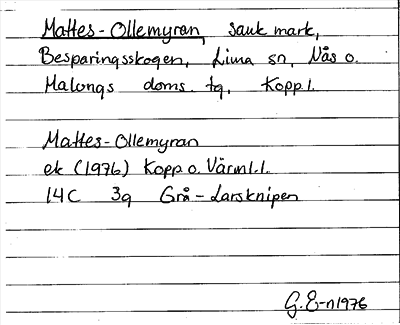 Mattes-Ollemyran, sank mark,
Besparingsskogen, Lima sn, Nås o.
Malungs doms. tg, Kopp.l.
Mattes-Ollemyran
ek (1976) Kopp o. Värml.l.
14C 3g Grå-Larsknipen
G.E-n 1976